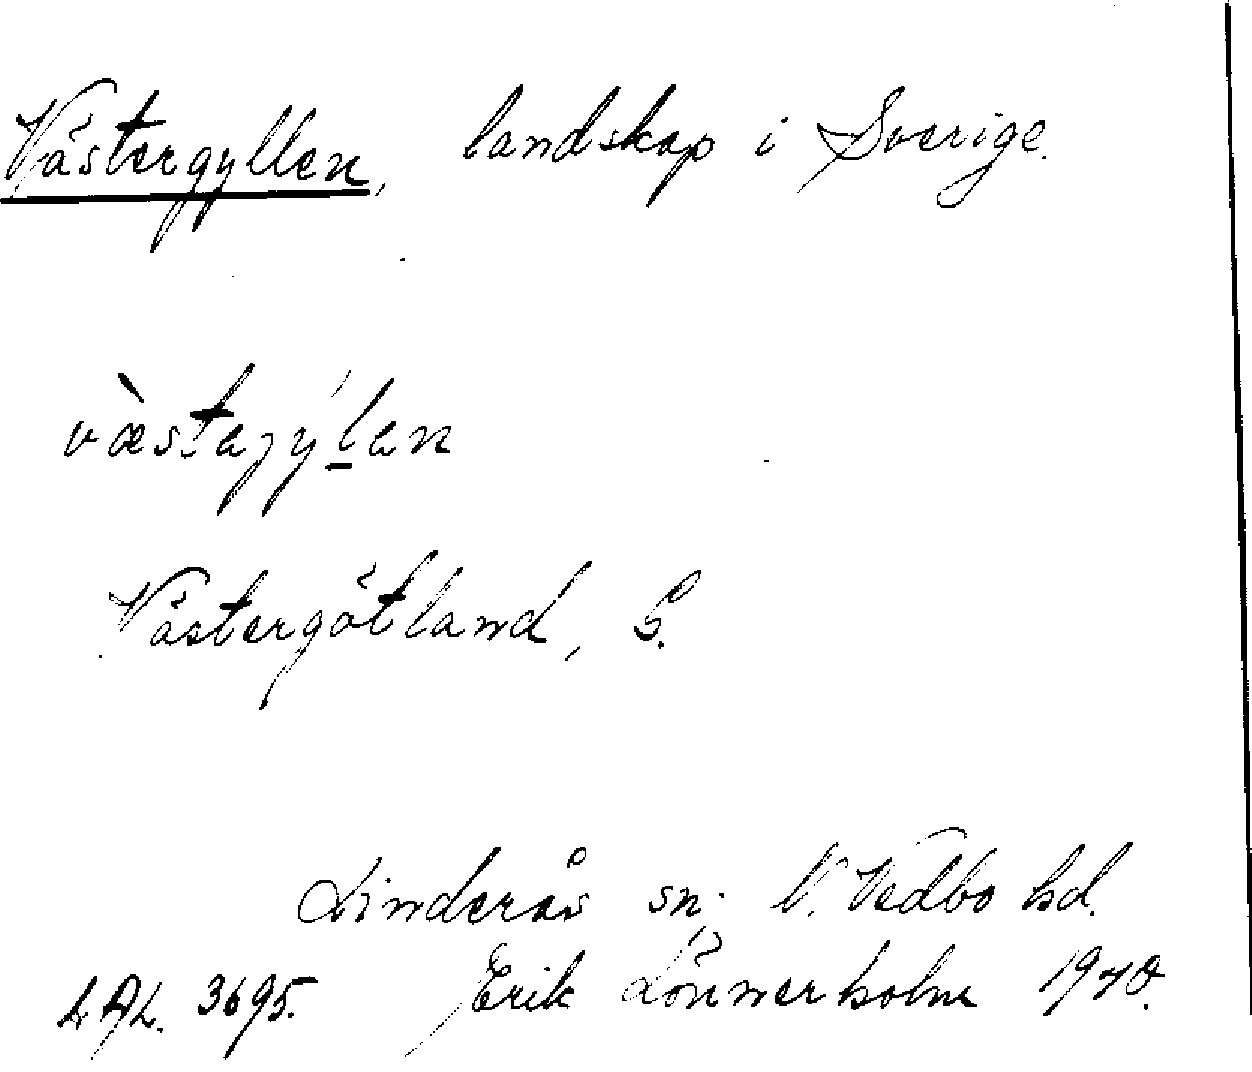 Västergyllen, landskap i Sverige.
væstaȷý̱lan
Västergötland, S.
Linderås sn. N. Vedbo hd.
LAL. 3695. Erik Lönnerholm 1940.